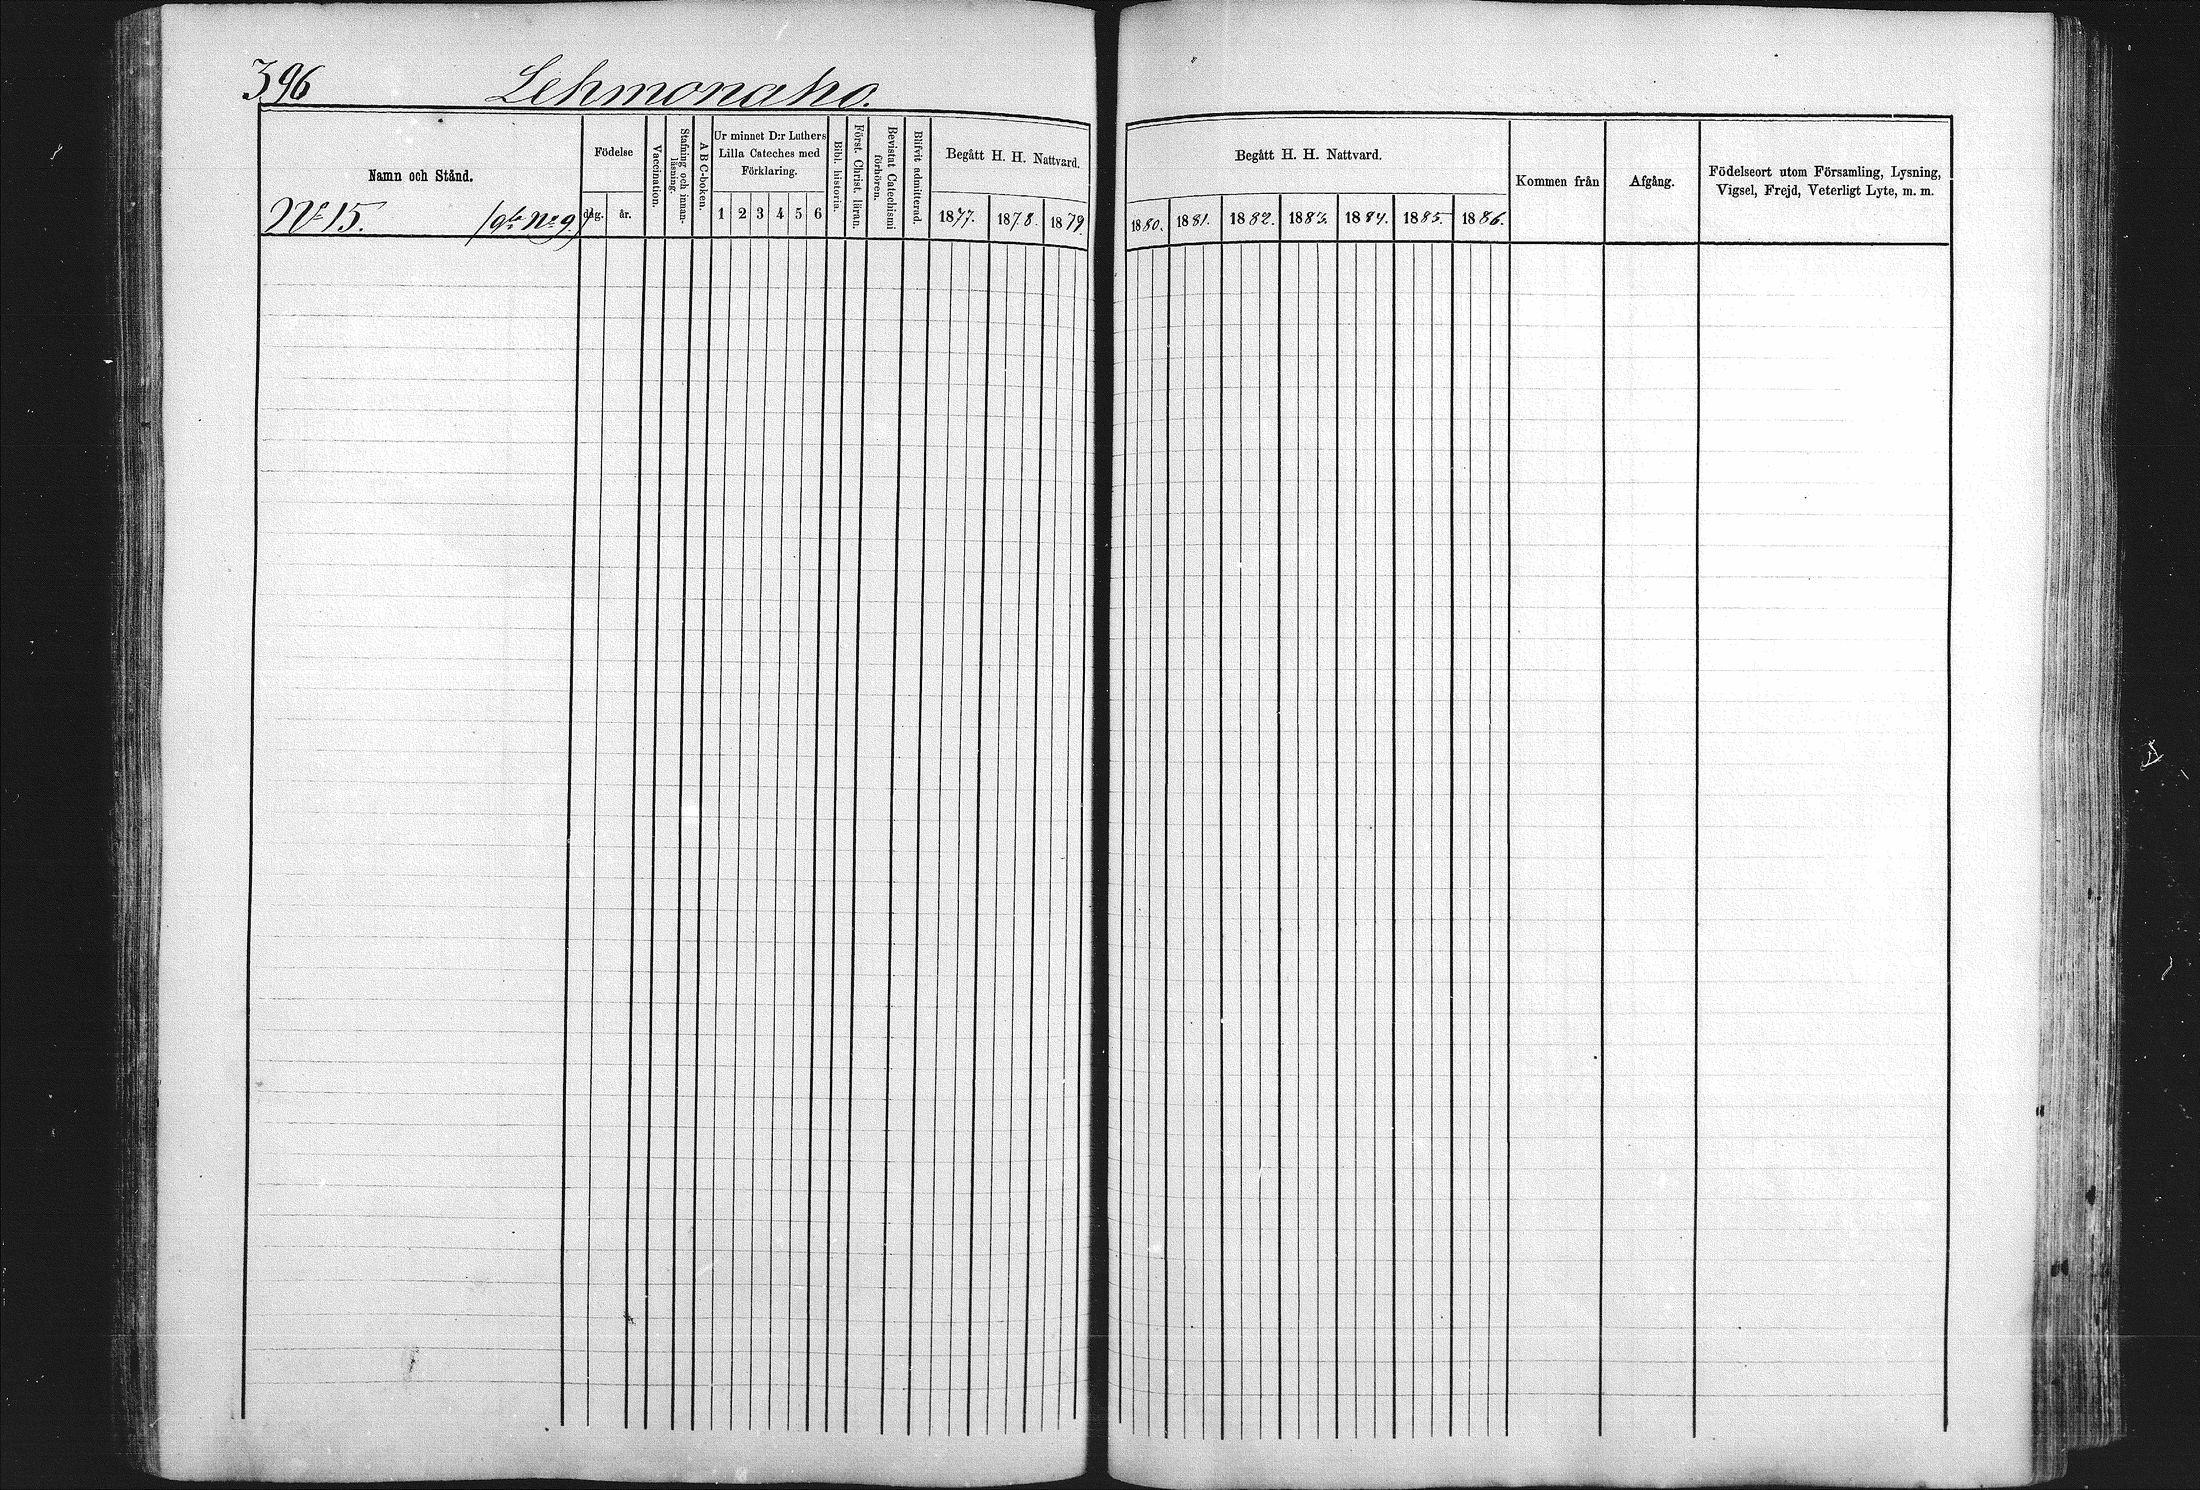 396 Lehmonaho.
Namn och Stånd.
No 15. (gla No 9.)
Födelse
dag. år.
Vaccination.
Stafning och innan-
läsning.
A B C-boken.
Ur minnet D:r Luthers
Lilla Cateches med
Förklaring.
1 2 3 4 5 6
Bibl. historia.
Först. Christ. läran.
Bevistat Catechismi
förhören.
Blifvit admitterad.
Begått H. H. Nattvard.
1877. 1878. 1879.
Begått H. H. Nattvard.
1880. 1881. 1882. 1883. 1884. 1885. 1886.
Kommen från
Afgång.
Födelseort utom Församling, Lysning,
Vigsel, Frejd, Veterligt Lyte, m. m.